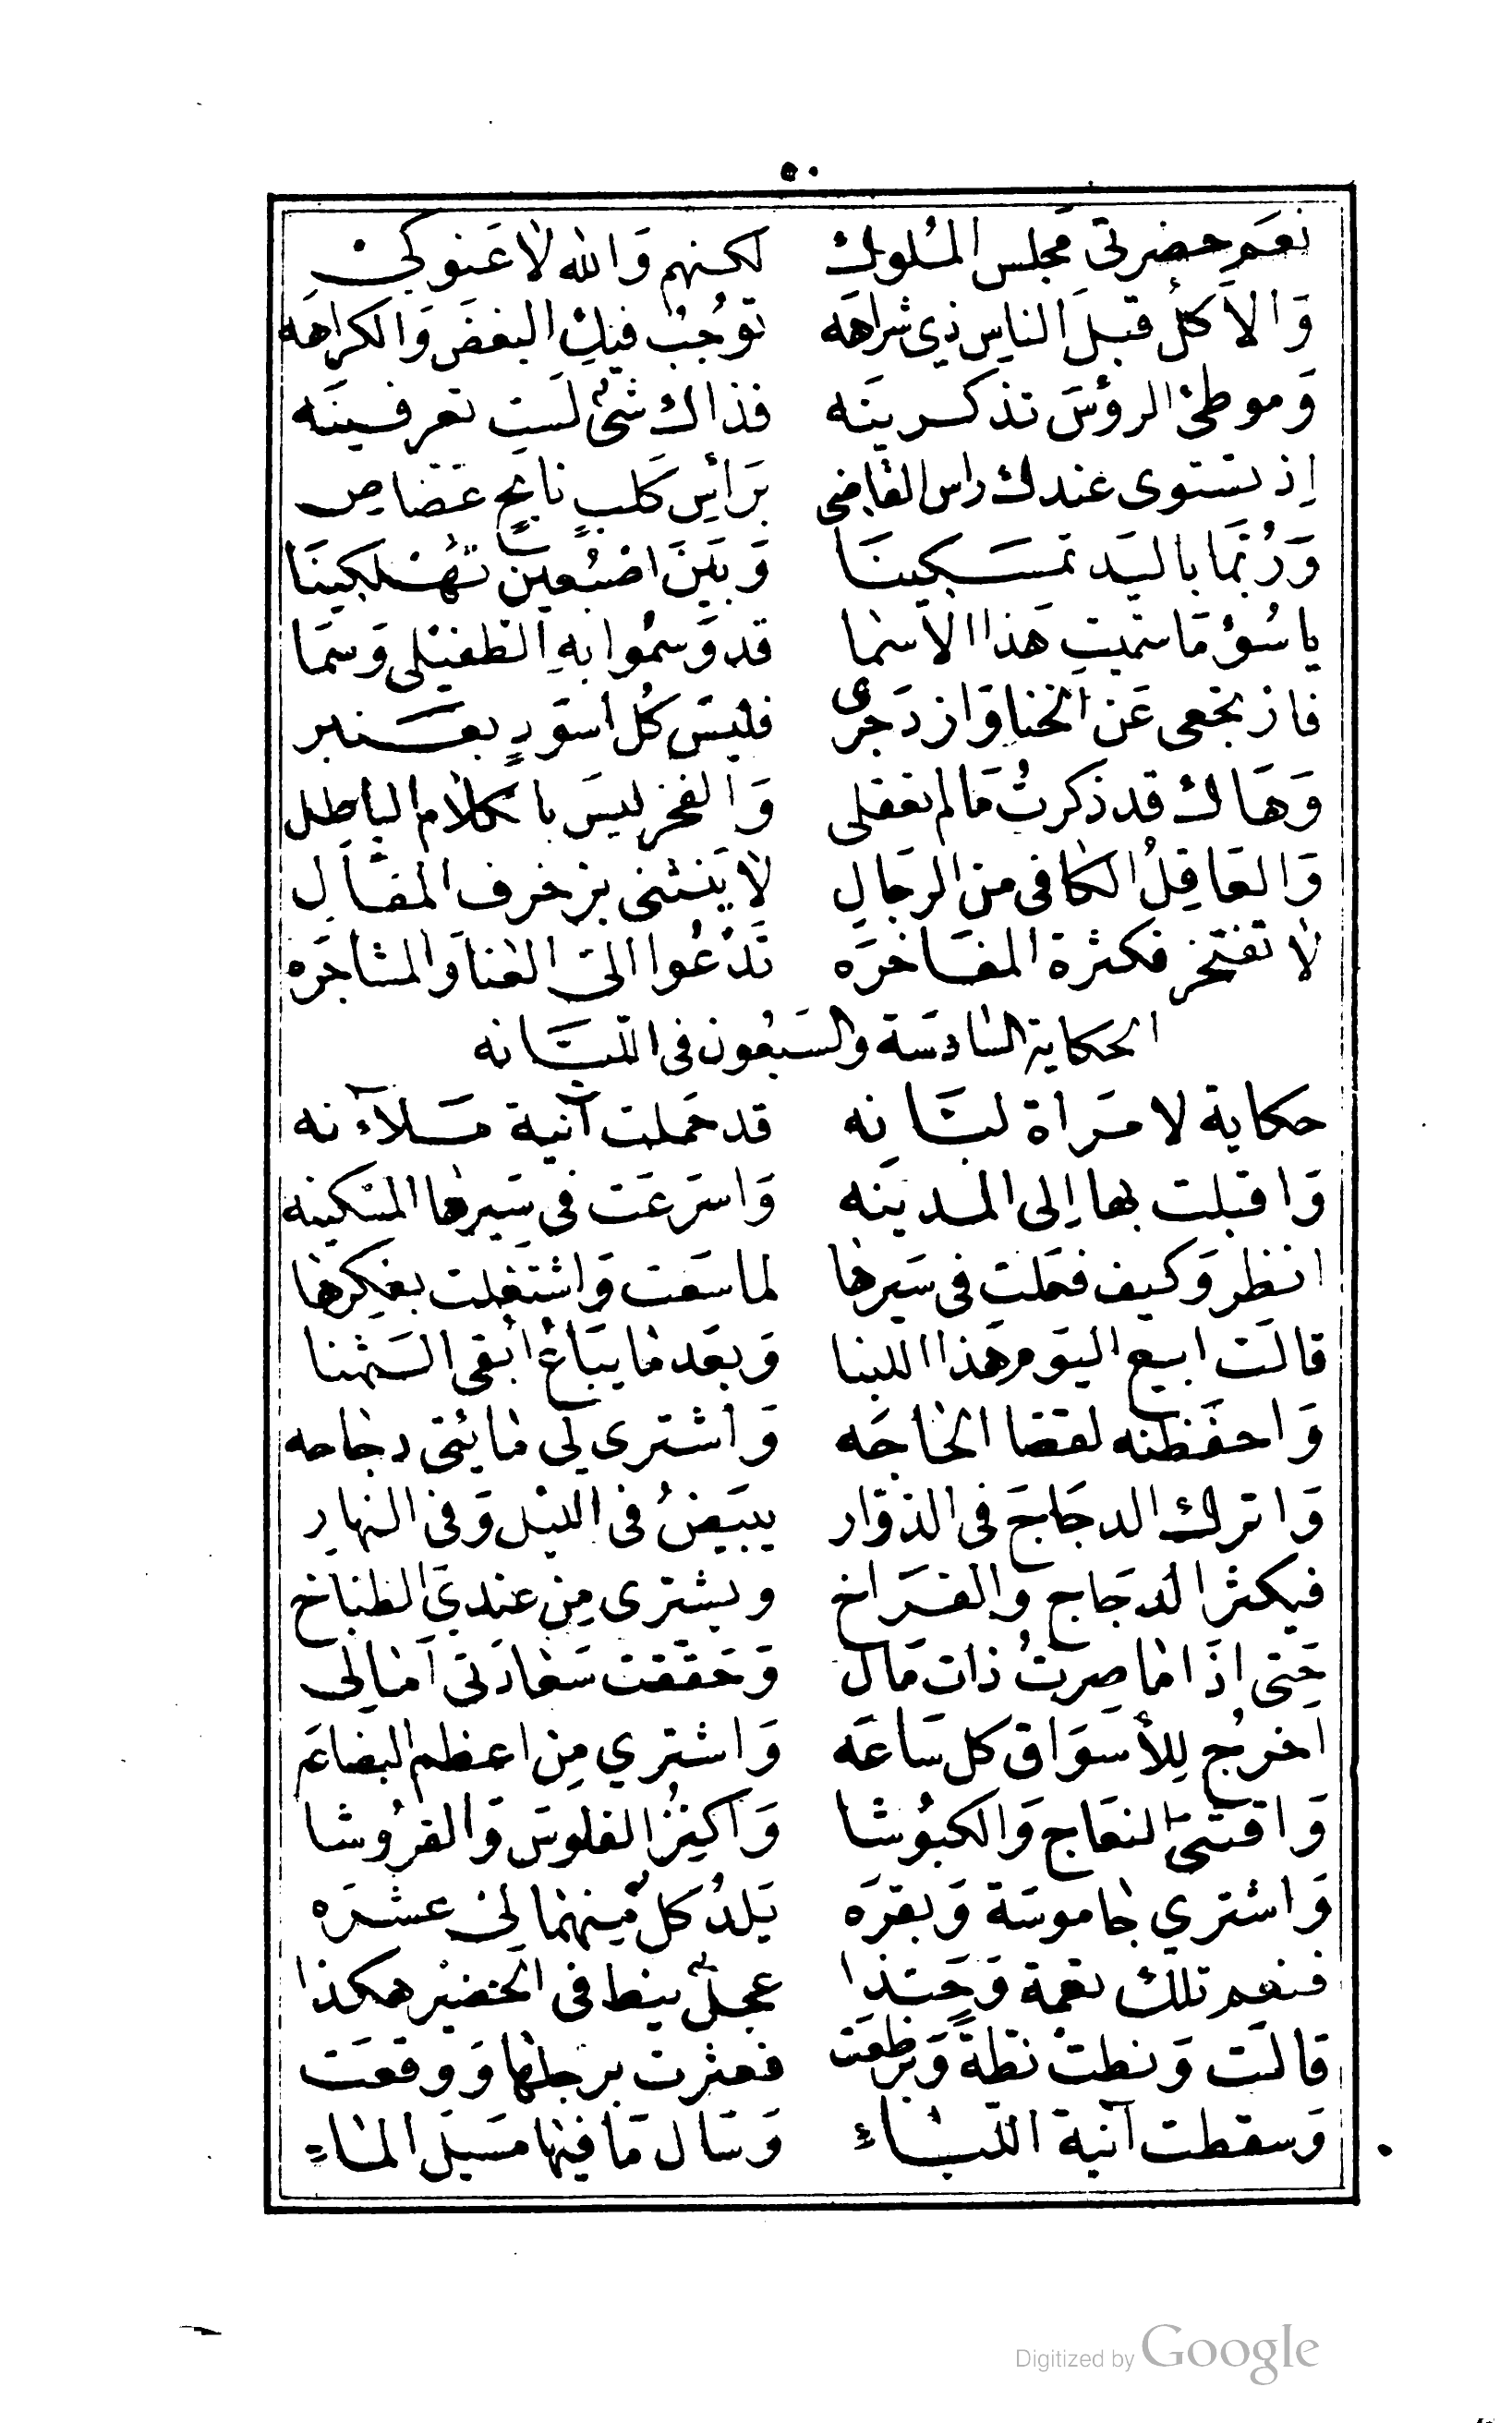 ٥٠
نعَم حضرتى مجلس المُلوك لكنهم وَالله لاعَنوكى
وَالاكلُ قبلَ الناسِ ذي شراهَه توُجبُ فيكِ البغضَ وَالكراهَه
وَموطئ الرؤسَ تذكرينَه فذاك شئٌ لَستِ تعرفينَه
إذ تستوى عندك راس القاضِى برَأسِ كَلبٍ نابحٍ عَضاضِ
وَرُبّما باليَد تمسَكِينَا وَبَينَ اصْبُعين تُهْلكِينَا
ياسُؤ مَا سَمّيتِ هَذا الاسْما قد وَسمُوا بهِ الطفيْلى وَسمَّا
فارْبحَعى عَن الخنا وَازدَجرى فليسَ كُل اسوَدٍ بعَنبر
وَهَاك قد ذكرتُ مَا لم تعقلى وَالفخر ليسَ بالكلام الباطِل
وَالعَاقِلُ الكافى من الرجَالِ لا يَنثنى بزخرف المقَالِ
لا تفتخر فكثرة المفَاخَرَه تَدْعُوا الى العنا وَالمشاجَرَه
الحكاية السّادسَة والسَبعُون فى اللبّانه
حكاية لامرَأة لبّانه قد حَملت آنية مَلآنه
وَاقبلت بها إلى المدينَه وَاسرَعَت فى سَيرها المسْكينه
انظر وَكيف فعَلت فى سَيرها لما سَعَت وَاشتغَلت بفِكرها
قالَت ابيع اليَوم هَذا اللبنا وَبعَد مَا يبَاعُ أبقى الثَمنا
وَاحفَظنه لقضا الحَاجَه وَاشترى لى مَائتى دجَاجه
وَاترك الدجَاجَ فى الدوّار يبيَضُ فى الليْل وَفى النهارِ
فيكثر الدجَاج وَالفرَاخ ويشترى مِن عندِيَ الطبّاخ
حَتى اذَا مَا صِرتُ ذات مَال وَحَققت سَعادَتى آمَالِى
اخرُج لِلأسوَاق كل سَاعَه وَاشتري مِن اعظم البضاعَه
وَاقتنى النعَاج وَالكبُوشَا وَاكنِزُ الفلوسَ وَالقرُوشا
وَاشتري جَاموسَة وَبقرَه يَلدُ كلٌ مِنهمَا لى عشرَه
فنعم تلك نعمة وَحَبّذا عجلٌ ينط فى الخضيْر هكذا
قالَت وَنطتْ نَطةً وَبرْطعَت فعثرت برجلهَا وَوقعَت
وَسقطت آنية اللبَاءِ وَسَال مَا فيهَا مَسيَلَ المَاءِ
Digitized by Google